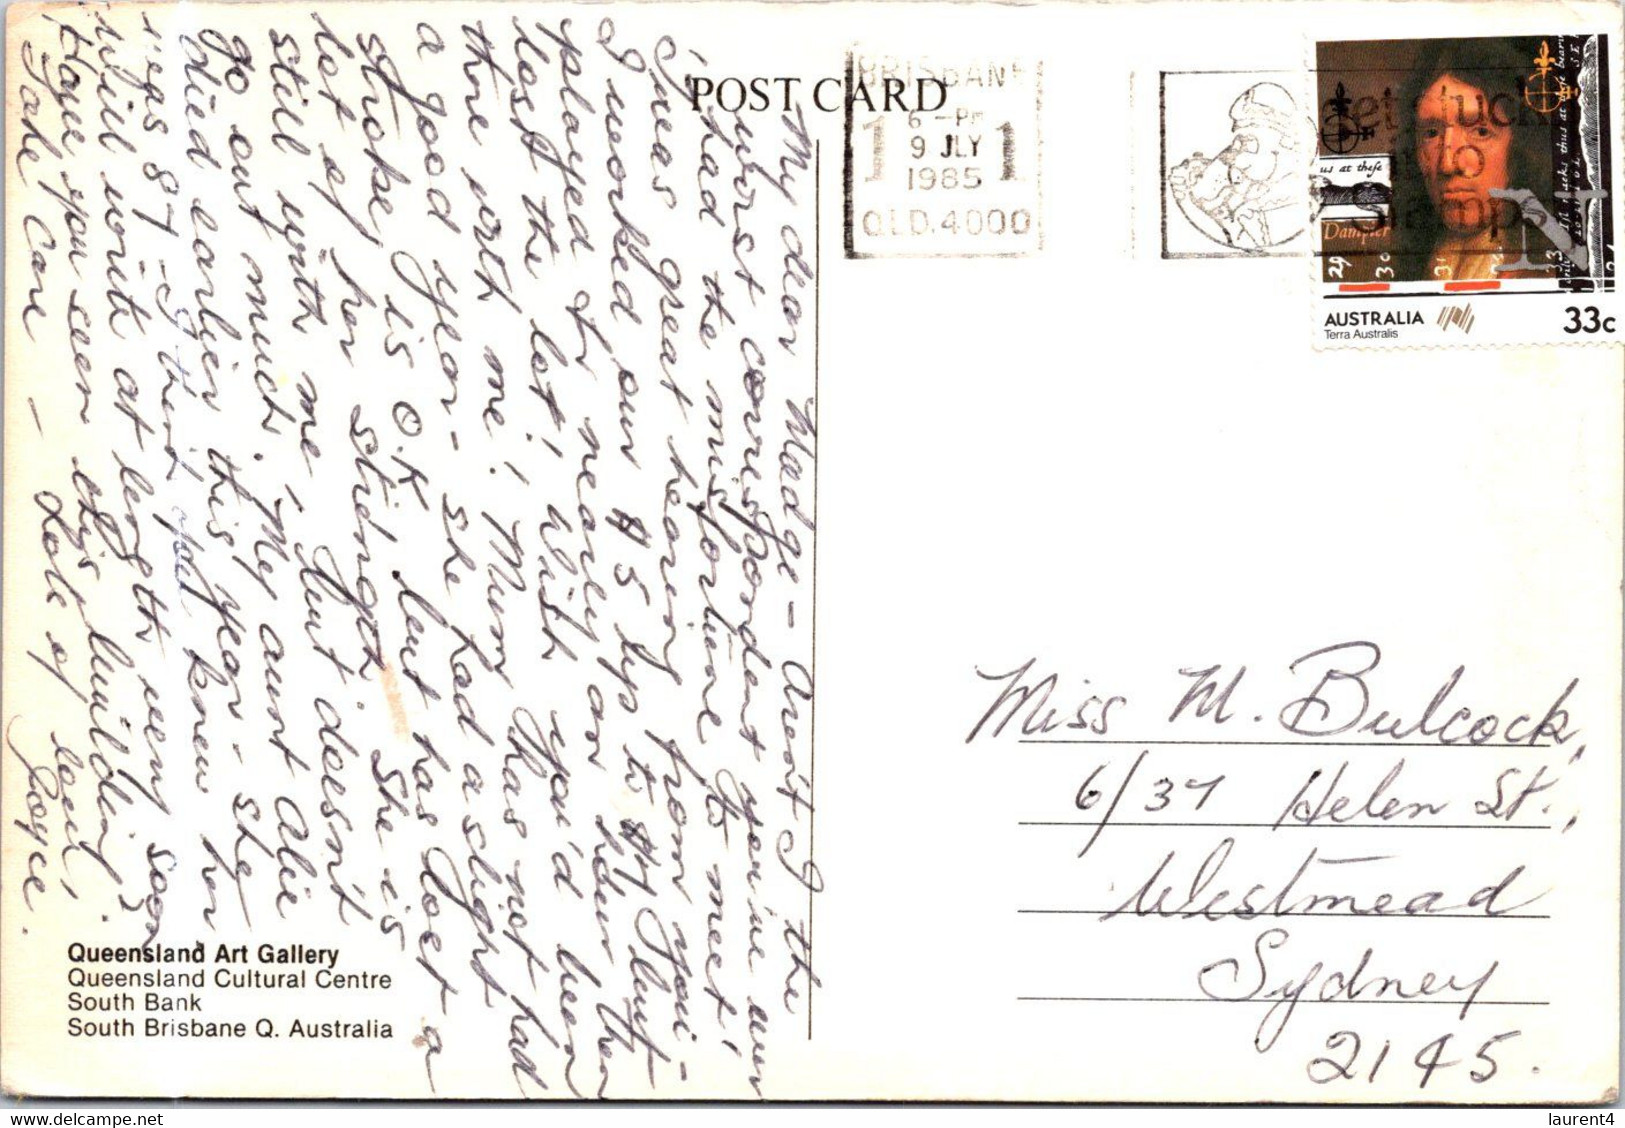 POST CARD
BRISBANE
6-PM
1 9 JLY 1
1985
QLD. 4000
get stuck
into
stamps
us at these
Dampier
29 30 31 32 33
AUSTRALIA 33c
Terra Australis
My dear Madge - Aren't I the
worst correspondent you've ever
had the misfortune to meet!
It was great hearing from you -
I worked our $5 up to $17 but
played for nearly an hour then
lost the lot! Wish you'd been
there with me! Mum has not had
a good year - she had a slight
stroke, is O.K. but has lost a
lot of her strength. She is
still with me, but doesn't
go out much. My aunt Alie
died earlier this year - she
was 87 - I think you knew her
Will write at length very soon
Have you seen this building?
Take Care - Lots of love,
Joyce.
Queensland Art Gallery
Queensland Cultural Centre
South Bank
South Brisbane Q. Australia
Miss M. Bulcock,
6/37 Helen St.,
Westmead
Sydney
2145.
laurent4